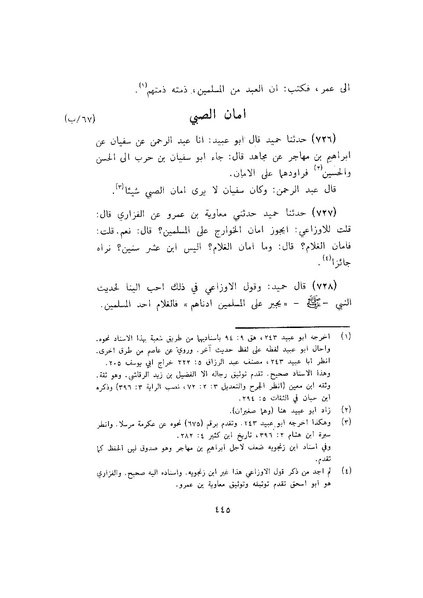 الى عمر، فكتب: ان العبد من المسلمين، ذمته ذمتهم(١).
امان الصبي
(٦٧/ب)
(٧٢٦) حدثنا حميد قال ابو عبيد: انا عبد الرحمن عن سفيان عن
ابراهيم بن مهاجر عن مجاهد قال: جاء ابو سفيان بن حرب الى الحسن
والحسين(٢) فراودهما على الامان.
قال عبد الرحمن: وكان سفيان لا يرى امان الصبي شيئا(٣).
(٧٢٧) حدثنا حميد حدثني معاوية بن عمرو عن الفزاري قال:
قلت للاوزاعي: ايجوز امان الخوارج على المسلمين؟ قال: نعم. قلت:
فامان الغلام؟ قال: وما امان الغلام؟ اليس ابن عشر سنين؟ نراه
جائزا(٤).
(٧٢٨) قال حميد: وقول الاوزاعي في ذلك احب الينا لحديث
النبي - ﷺ - «يجير على المسلمين ادناهم» فالغلام احد المسلمين.
(١) اخرجه ابو عبيد ٢٤٣، هق ٩: ٩٤ باسناديهما من طريق شعبة بهذا الاسناد نحوه.
واحال ابو عبيد لفظه على لفظ حديث آخر. وروي عن عاصم من طرق اخرى.
انظر ابا عبيد ٢٤٣، مصنف عبد الرزاق ٥: ٢٢٢ خراج ابي يوسف ٢٠٥.
وهذا الاسناد صحيح. تقدم توثيق رجاله الا الفضيل بن زيد الرقاشي. وقد
وثقه ابن معين (انظر الجرح والتعديل ٣: ٢: ٧٢، نصب الراية ٣: ٣٩٦) وذكره
ابن حبان في الثقات ٥: ٢٩٤.
(٢) زاد ابو عبيد هنا (وهما صغيران).
(٣) وهكذا اخرجه ابو عبيد ٢٤٣. وتقدم برقم (٦٧٥) نحوه عن عكرمة مرسلا. وانظر
سيرة ابن هشام ٢: ٣٩٦، تاريخ ابن كثير ٤: ٢٨٢.
وفي اسناد ابن زنجويه ضعف لاجل ابراهيم بن مهاجر وهو صدوق لين الحفظ كما
تقدم.
(٤) لم اجد من ذكر قول الاوزاعي هذا غير ابن زنجويه. واسناده اليه صحيح. والفزاري
هو ابو اسحق تقدم توثيقه وتوثيق معاوية بن عمرو.
٤٤٥